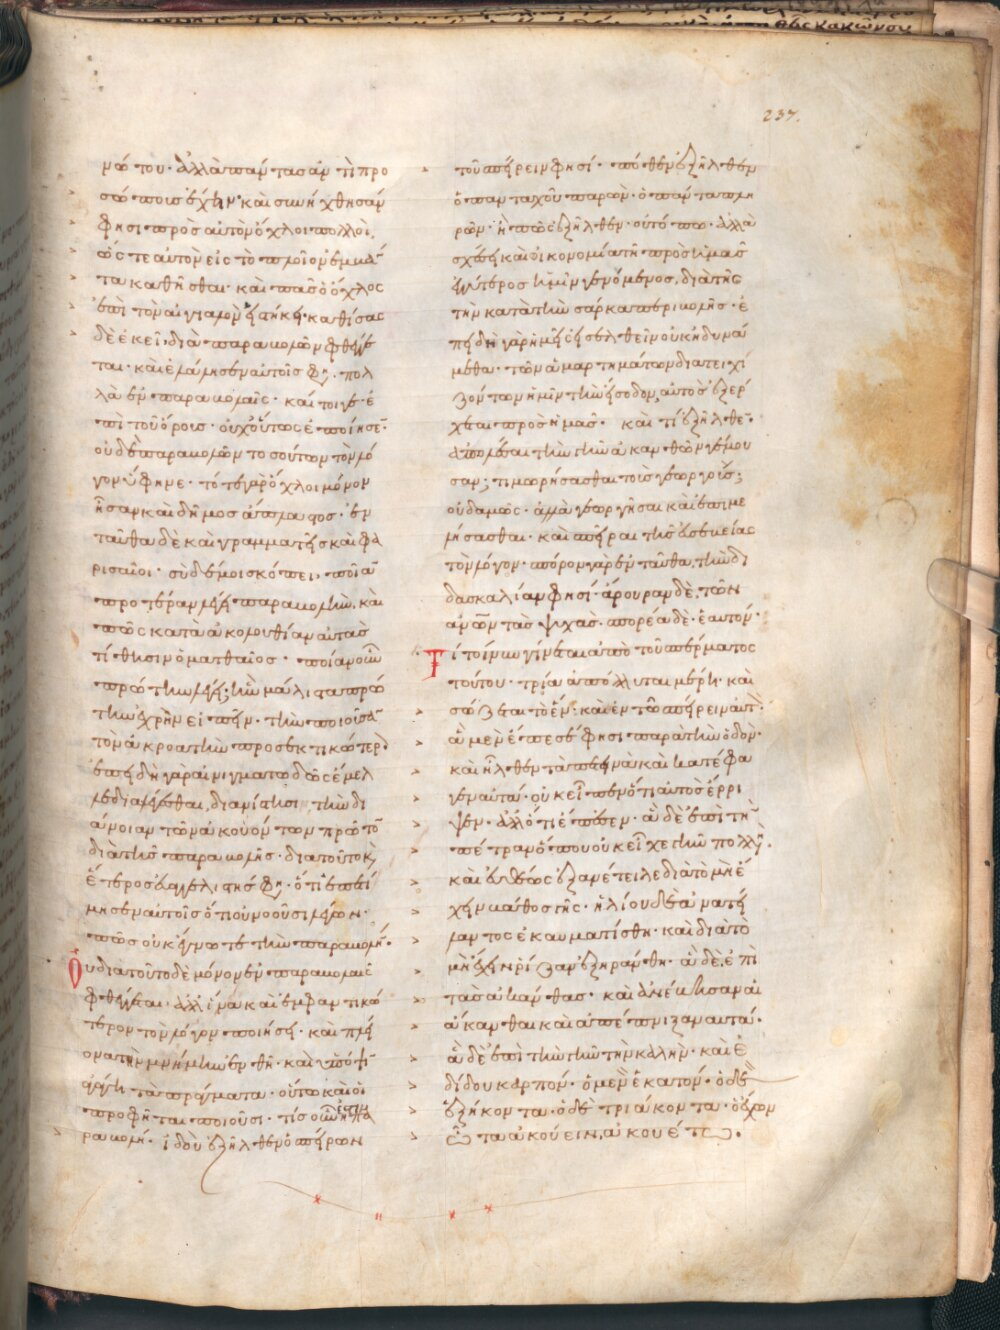 237.
νώτου· ἀλλὰ πάντας ἀντιπρο
σώπους ἔχῃν· καὶ συνήχθησάν
φησι πρὸς αὐτὸν ὄχλοι πολλοὶ.
ὥς τε αὐτὸν εἰς τὸ πλοῖον ἐμβάν
τα καθῆσθαι· καὶ πᾶς ὁ ὄχλος
ἐπὶ τὸν αἰγιαλὸν εἱστήκει· καθίσας
δὲ ἐκεῖ, διὰ παραβολῶν φθέγγε
ται· καὶ ἐλάλησεν αὐτοῖς φησὶ· πολ
λὰ ἐν παραβολαῖς· καί τοιγε ἐ
πὶ τοῦ ὄρους· οὐχ οὕτως ἐποίησεν·
οὐδὲ παραβολῶν τοσούτων τὸν λό
γον ὕφηνε· τότε γὰρ ὄχλοι μόνον
ἦσαν καὶ δῆμος ἄπλαστος· ἐν
ταῦθα δὲ καὶ γραμματεῖς καὶ φα
ρισαῖοι· σὺ δέ μοι σκόπει, ποίαν
προτέραν λέγει παραβολὴν. καὶ
πῶς κατὰ ἀκολουθίαν αὐτὰς
τίθησιν ὁ ματθαῖος· ποίαν οὖν
πρώτην λέγει; ἣν μάλιστα πρώ
την ἐχρῆν εἰπεῖν· τὴν ποιοῦσαν
τὸν ἀκροατὴν προσεκτικώτερον·
ἐπειδὴ γὰρ αἰνιγματωδῶς ἔμελ
λε διαλέγεσθαι, διανίστησι τὴν δι
άνοιαν τῶν ἀκουόντων πρῶτον
διὰ τῆς παραβολῆς· διὰ τοῦτο καὶ
ἕτερος εὐαγγελιστής φησιν· ὅτι ἐπετί
μησεν αὐτοῖς ὅτι οὐ νοοῦσι λέγων·
πῶς οὐκ ἔγνωτε τὴν παραβολήν·
Οὐ διὰ τοῦτο δὲ μόνον ἐν παραβολαῖς
φθέγγεται· ἀλλ' ἵνα καὶ ἐμφαντικώ
τερον τὸν λόγον ποιήσῃ· καὶ πλεί
ονα τὴν μνήμην ἐνθῇ· καὶ ὑπ' ὄψιν
ἀγάγῃ τὰ πράγματα· οὕτω καὶ οἱ
προφῆται ποιοῦσι· τίς οὖν ἐστιν ἡ πα
ραβολή· ἰδοὺ ἐξῆλθεν ὁ σπείρων
τοῦ σπείρειν φησί· πόθεν ἐξῆλθεν
ὁ πανταχοῦ παρὼν· ὁ πάντα πλη
ρῶν· ἢ πῶς ἐξῆλθεν· οὐ τόπω· ἀλλὰ
σχέσει καὶ οἰκονομία τῆ πρὸς ἡμᾶς
ἐγγύτερος ἡμῖν γενόμενος, διὰ τῆς
τὴν κατὰ τὴν σάρκα περιβολῆς· ἐ
πειδὴ γὰρ ἡμεῖς εἰσελθεῖν οὐκ ἠδυνά
μεθα· τῶν ἁμαρτημάτων διατειχι
ζόντων ἡμῖν τὴν εἴσοδον, αὐτὸς ἐξέρ
χεται πρὸς ἡμᾶς· καὶ τί ἐξῆλθεν·
ἀπολέσαι τὴν γῆν τὴν ἀκανθῶν γέμου
σαν; τιμωρήσασθαι τοὺς γεωργούς;
οὐδαμῶς· ἀλλὰ γεωργῆσαι καὶ ἐπιμε
λήσασθαι· καὶ σπεῖραι τῆς εὐσεβείας
τὸν λόγον· σπόρον γὰρ ἐνταῦθα, τὴν δι
δασκαλίαν φησί· ἄρουραν δὲ, τῶν
ἀνων τὰς ψυχάς· σπορέα δὲ· ἑαυτόν·
Τί τοίνυν γίνεται ἀπὸ τοῦ σπέρματος
τούτου· τρία ἀπόλλυται μέρη· καὶ
σώζεται τὸ ἕν· καὶ ἐν τῶ σπείρειν αὐτὸν·
ἃ μὲν ἔπεσέ φησι παρὰ τὴν ὁδὸν·
καὶ ἦλθεν τὰ πετεινὰ καὶ κατέφα
γεν αὐτά· οὐκ εἶπεν ὅτι αὐτὸς ἔρρι
ψεν· ἀλλ' ὅτι ἔπεσεν· ἃ δὲ ἐπὶ τὴν
πέτραν ὅπου οὐκ εἶχε γῆν πολλήν·
καὶ εὐθέως ἐξανέτειλε διὰ τὸ μὴ ἔ
χειν βάθος γῆς· ἡλίου δὲ ἀνατεί
λαντος ἐκαυματίσθη· καὶ διὰ τὸ
μὴ ἔχειν ῥίζαν ἐξηράνθη· ἃ δὲ, ἐπὶ
τὰς ἀκάνθας· καὶ ἀνέβησαν αἱ
ἄκανθαι καὶ ἀπέπνιξαν αὐτά·
ἃ δὲ ἐπὶ τὴν γῆν τὴν καλὴν· καὶ ἐ
δίδου καρπόν· ὁ μὲν ἑκατόν· ὁ δὲ
ἑξήκοντα· ὁ δὲ τριάκοντα· ὁ ἔχων
ὦτα ἀκούειν, ἀκουέτω·